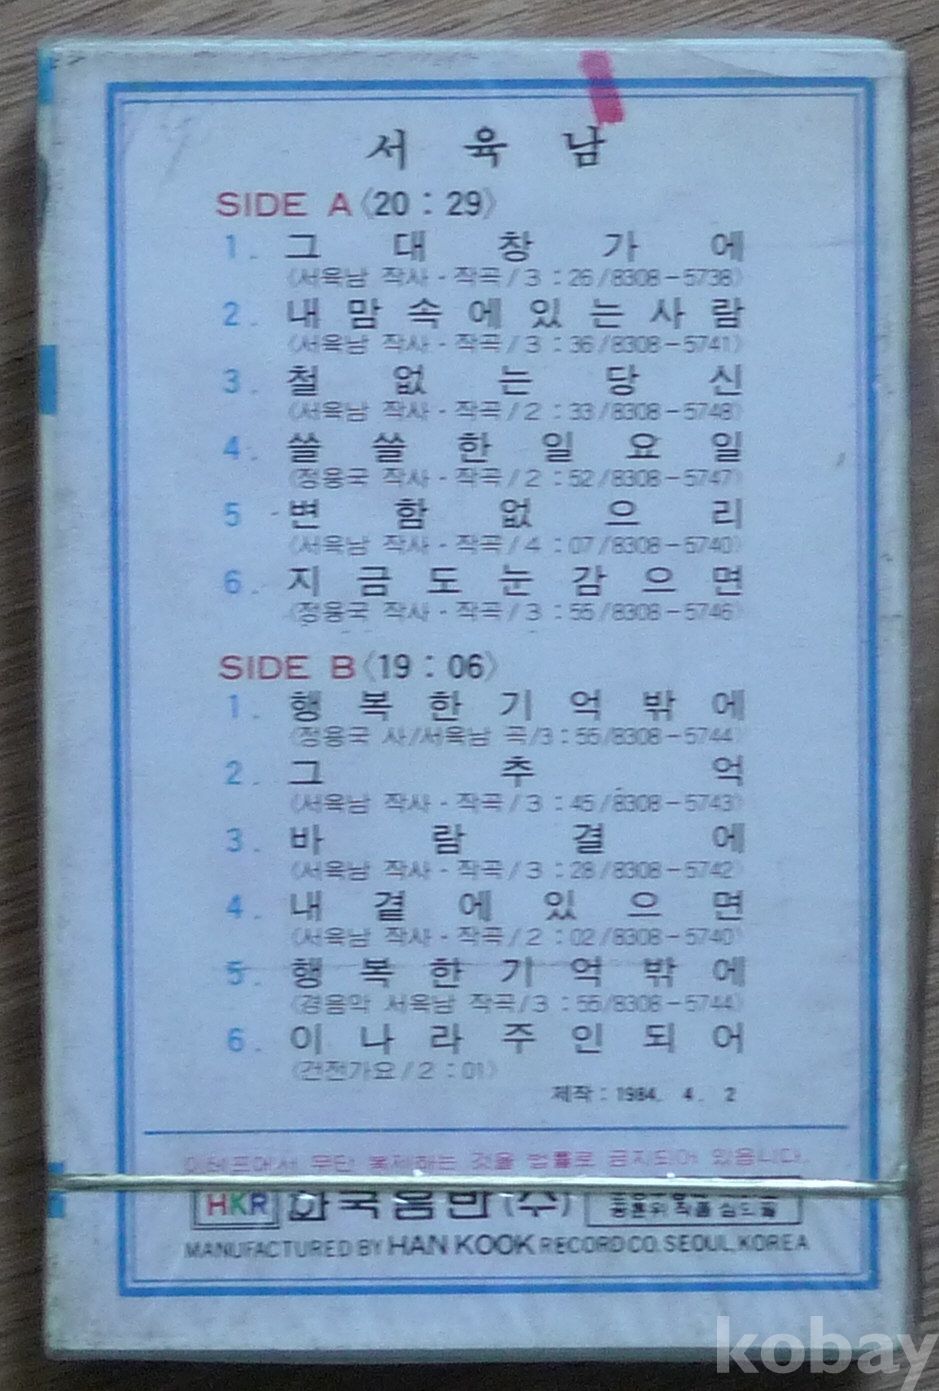 서 육 남
SIDE A 〈20 : 29〉
1. 그 대 창 가 에
〈서육남 작사·작곡/3 : 26/8308-5738〉
2. 내 맘 속 에 있 는 사 람
〈서육남 작사·작곡/3 : 36/8308-5741〉
3. 철 없 는 당 신
〈서육남 작사·작곡/2 : 33/8308-5748〉
4. 쓸 쓸 한 일 요 일
〈정용국 작사·작곡/2 : 52/8308-5747〉
5. 변 함 없 으 리
〈서육남 작사·작곡/4 : 07/8308-5740〉
6. 지 금 도 눈 감 으 면
〈정용국 작사·작곡/3 : 55/8308-5746〉
SIDE B 〈19 : 06〉
1. 행 복 한 기 억 밖 에
〈정용국 사/서육남 곡/3 : 55/8308-5744〉
2. 그 추 억
〈서육남 작사·작곡/3 : 45/8308-5743〉
3. 바 람 결 에
〈서육남 작사·작곡/3 : 28/8308-5742〉
4. 내 곁 에 있 으 면
〈서육남 작사·작곡/2 : 02/8308-5740〉
5. 행 복 한 기 억 밖 에
〈경음악 서육남 작곡/3 : 55/8308-5744〉
6. 이 나 라 주 인 되 어
〈건전가요/2 : 01〉
제작 : 1984. 4. 2
이테프에서 무단 복제하는 것을 법률로 금지되어 있읍니다.
HKR 한국음반(주)
공륜위 작품 심의필
MANUFACTURED BY HAN KOOK RECORD CO. SEOUL, KOREA
kobay